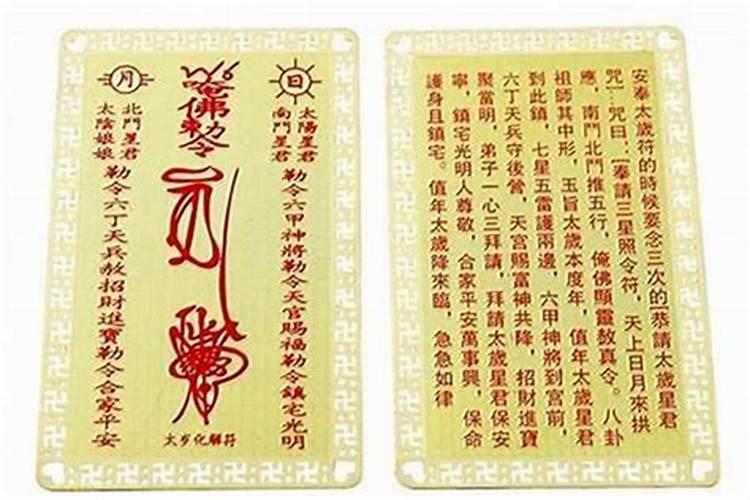 日
太陽星君
南門星君
勒令六甲神將勒令天官賜福勒令鎮宅光明
唵佛勅令
月
北門星君
太陰娘娘
勒令六丁天兵敖招財進寶勒令合家平安
太岁化解符
安奉太歲符的時候要念三次的[恭請太歲星君
咒]…咒曰:[奉請三星照令符,天上日月來拱
應,南門北門推五行,俺佛顯靈敖真令。八卦
祖師其中形,玉旨太歲本度年,值年太歲星君
到此鎮,七星五雷護兩邊,六甲神將到宮前,
六丁天兵守後營,天宮賜富神共降,招財進寶
聚當明,弟子一心三拜請,拜請太歲星君保安
寧,鎮宅光明人尊敬,合家平安萬事興,保命
護身且鎮宅。值年太歲降來臨,急急如律